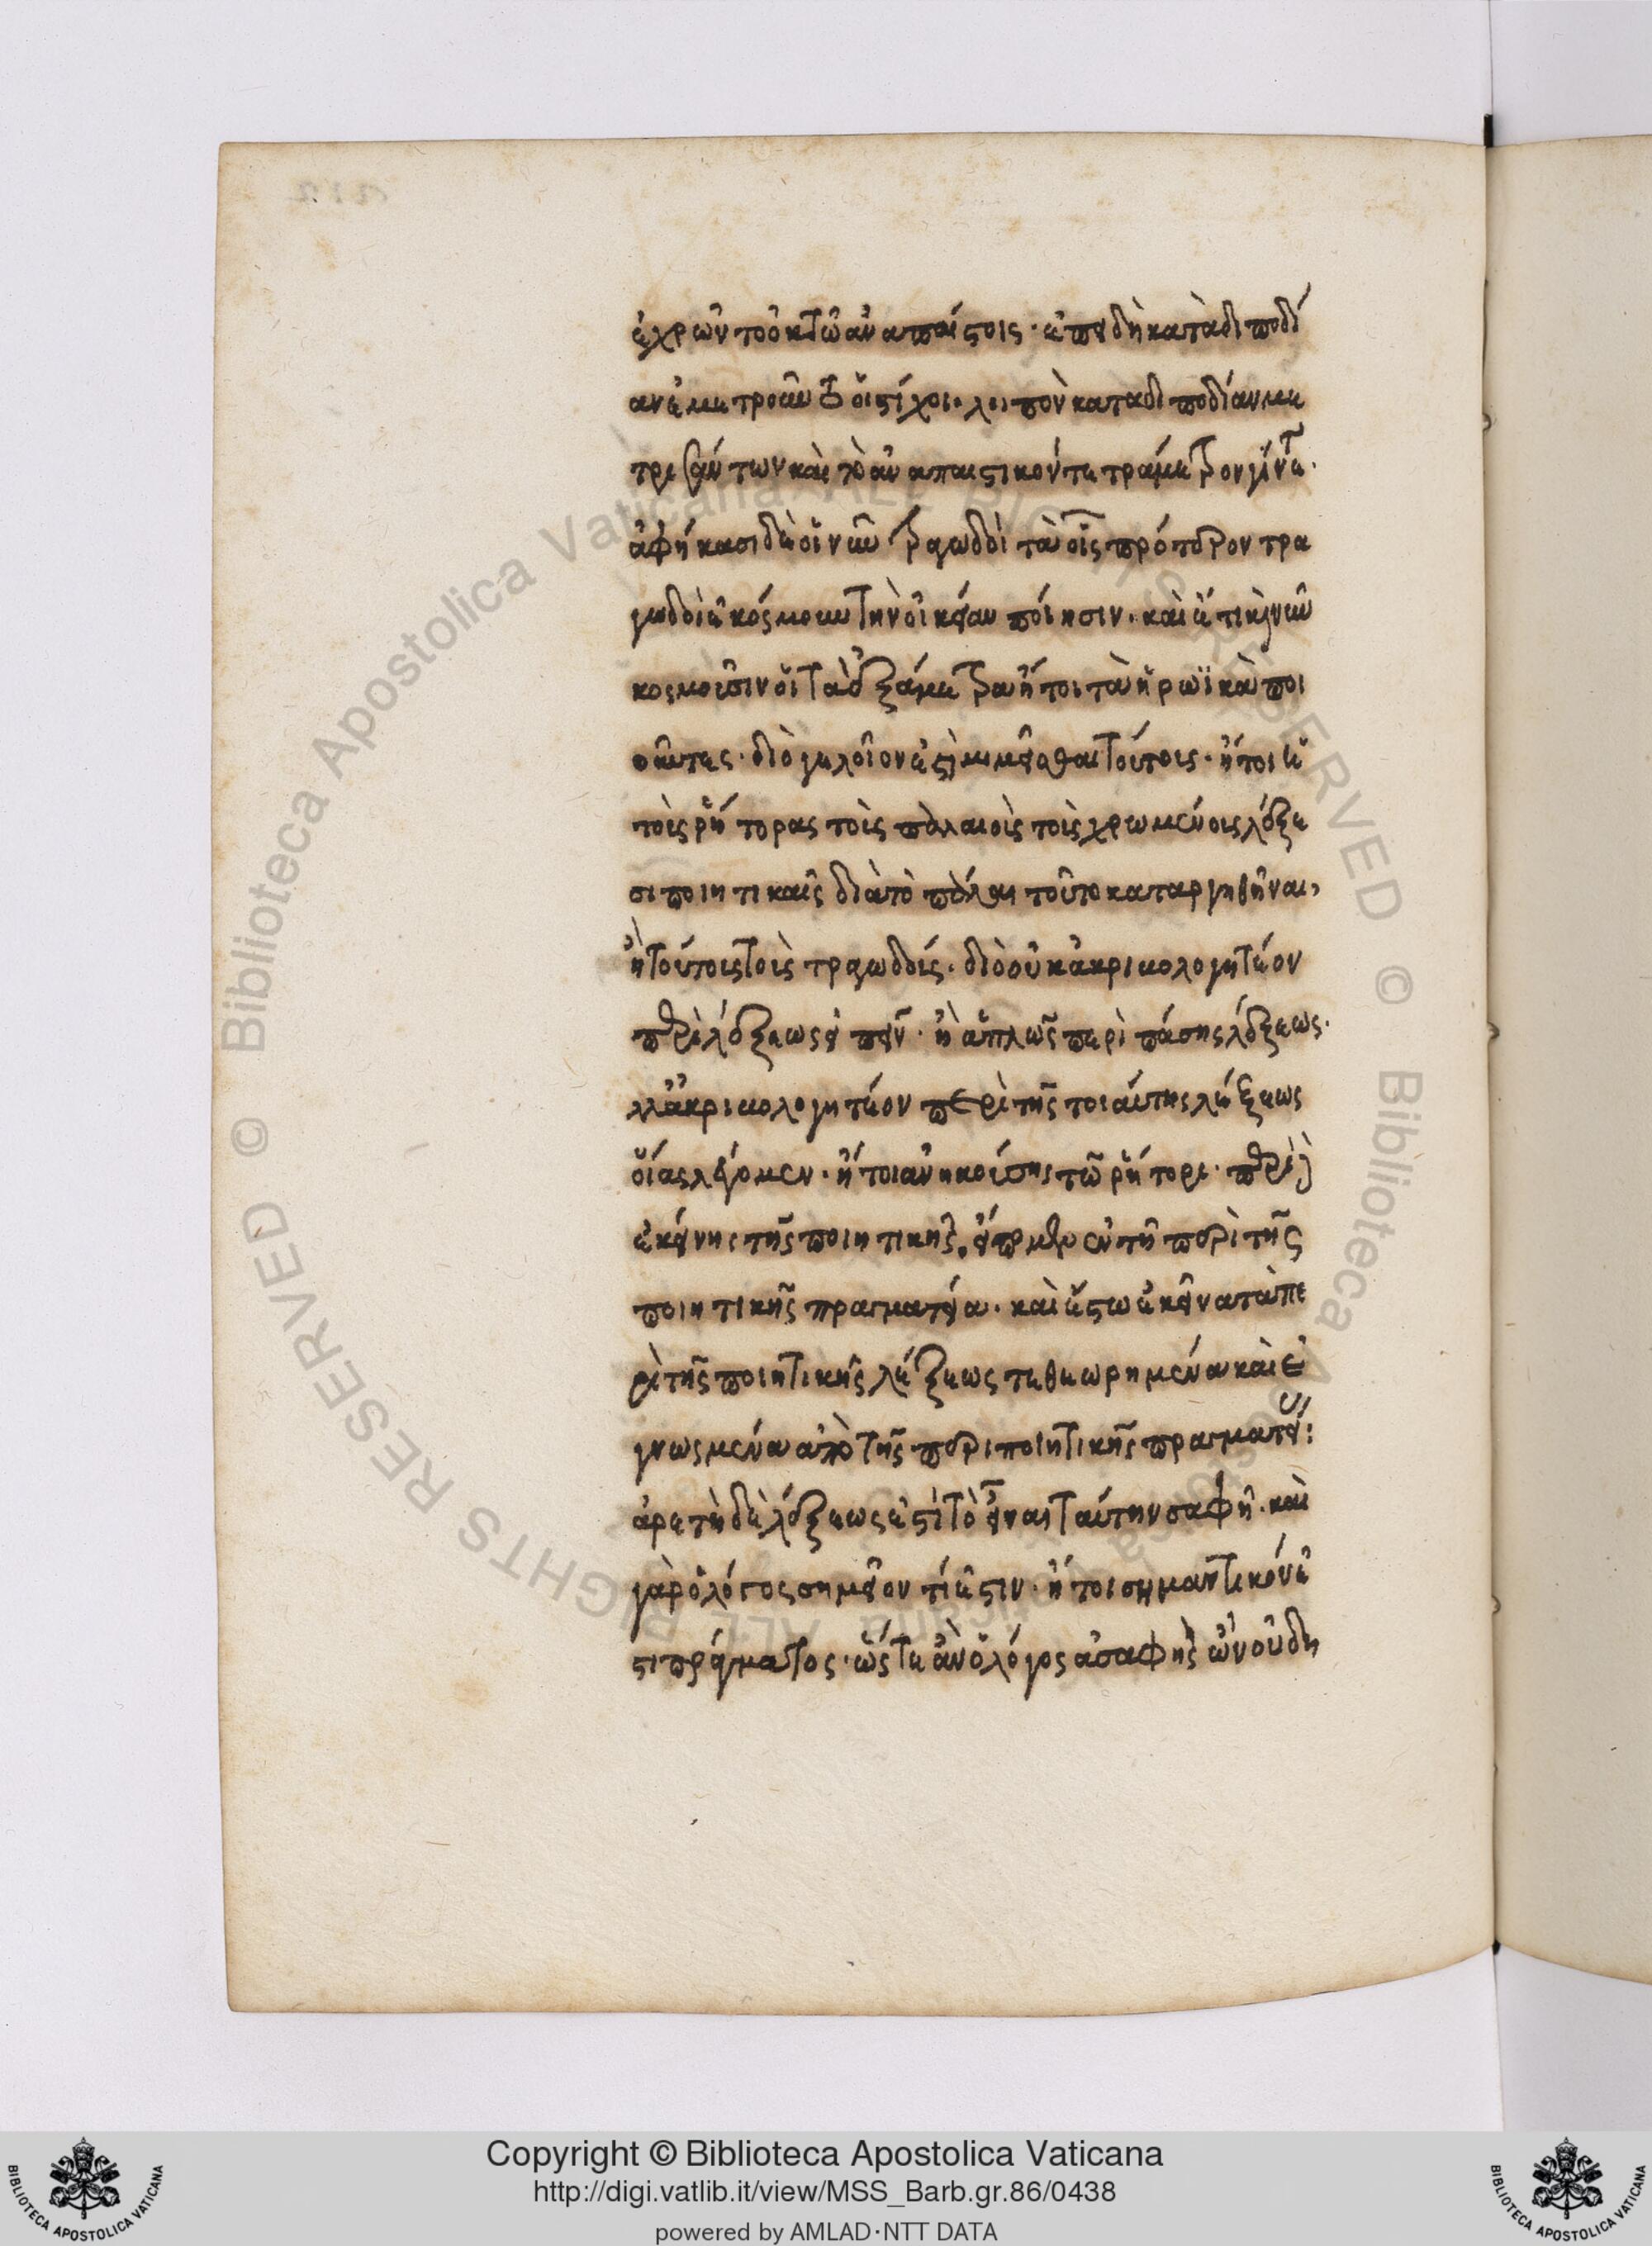 ἐχρῶντο ὀκτὼ ἀναπαίστοις· ἐπειδὴ κατὰ διποδί
αν ἐμετροῦντο οἱ στίχοι. λοιπὸν κατὰ διποδίαν με
τρηθέντων καὶ τὸ ἀναπαιστικὸν τετράμετρον γίνεται·
ἀφήκασι δὲ οἱ νῦν τραγωδοὶ τὰ οἷς πρότερον τρα
γωδοὶ ἐκόσμουν τὴν οἰκείαν ποίησιν. καὶ ἔτι καὶ νῦν
κοσμοῦσιν οἱ τὰ ἑξάμετρα ἤτοι τὰ ἡρωϊκὰ ποι
οῦντες· διὸ γελοῖον ἐστὶ μιμεῖσθαι τούτοις· ἤτοι ἢ
τοῖς ῥήτορας τοῖς παλαιοῖς τοῖς χρωμένοις λέξε
σι ποιητικαῖς διὰ τὸ πάλαι τοῦτο καταργηθῆναι,
ἢ τούτοις τοῖς τραγωδοῖς. διὸ οὐκ ἀκριβολογητέον
περὶ λέξεως εἰπεῖν· ἢ ἁπλῶς περὶ πάσης λέξεως.
ἀλλ' ἀκριβολογητέον περὶ τῆς τοιαύτης λέξεως
οἵας λέγομεν· ἤτοι ἀνηκούσης τῷ ῥήτορι· περὶ δὲ
ἐκείνης τῆς ποιητικῆς, εἴπομεν ἐν τῇ περὶ τῆς
ποιητικῆς πραγματεία. καὶ ἔστω ἐκεῖνα τὰ πε
ρὶ τῆς ποιητικῆς λέξεως τεθεωρημένα καὶ ἐ
γνωσμένα ἀπὸ τῆς περὶ ποιητικῆς πραγματείας:
ἀρετὴ δὲ λέξεως ἐστὶ τὸ εἶναι ταύτην σαφῆ. καὶ
γὰρ ὁ λόγος σημεῖον τί ἐστιν· ἤτοι σημαντικόν ἐ
στι πράγματος· ὥστε ἂν ὁ λόγος ἀσαφὴς ὢν οὐδὲ
Copyright © Biblioteca Apostolica Vaticana
http://digi.vatlib.it/view/MSS_Barb.gr.86/0438
powered by AMLAD·NTT DATA